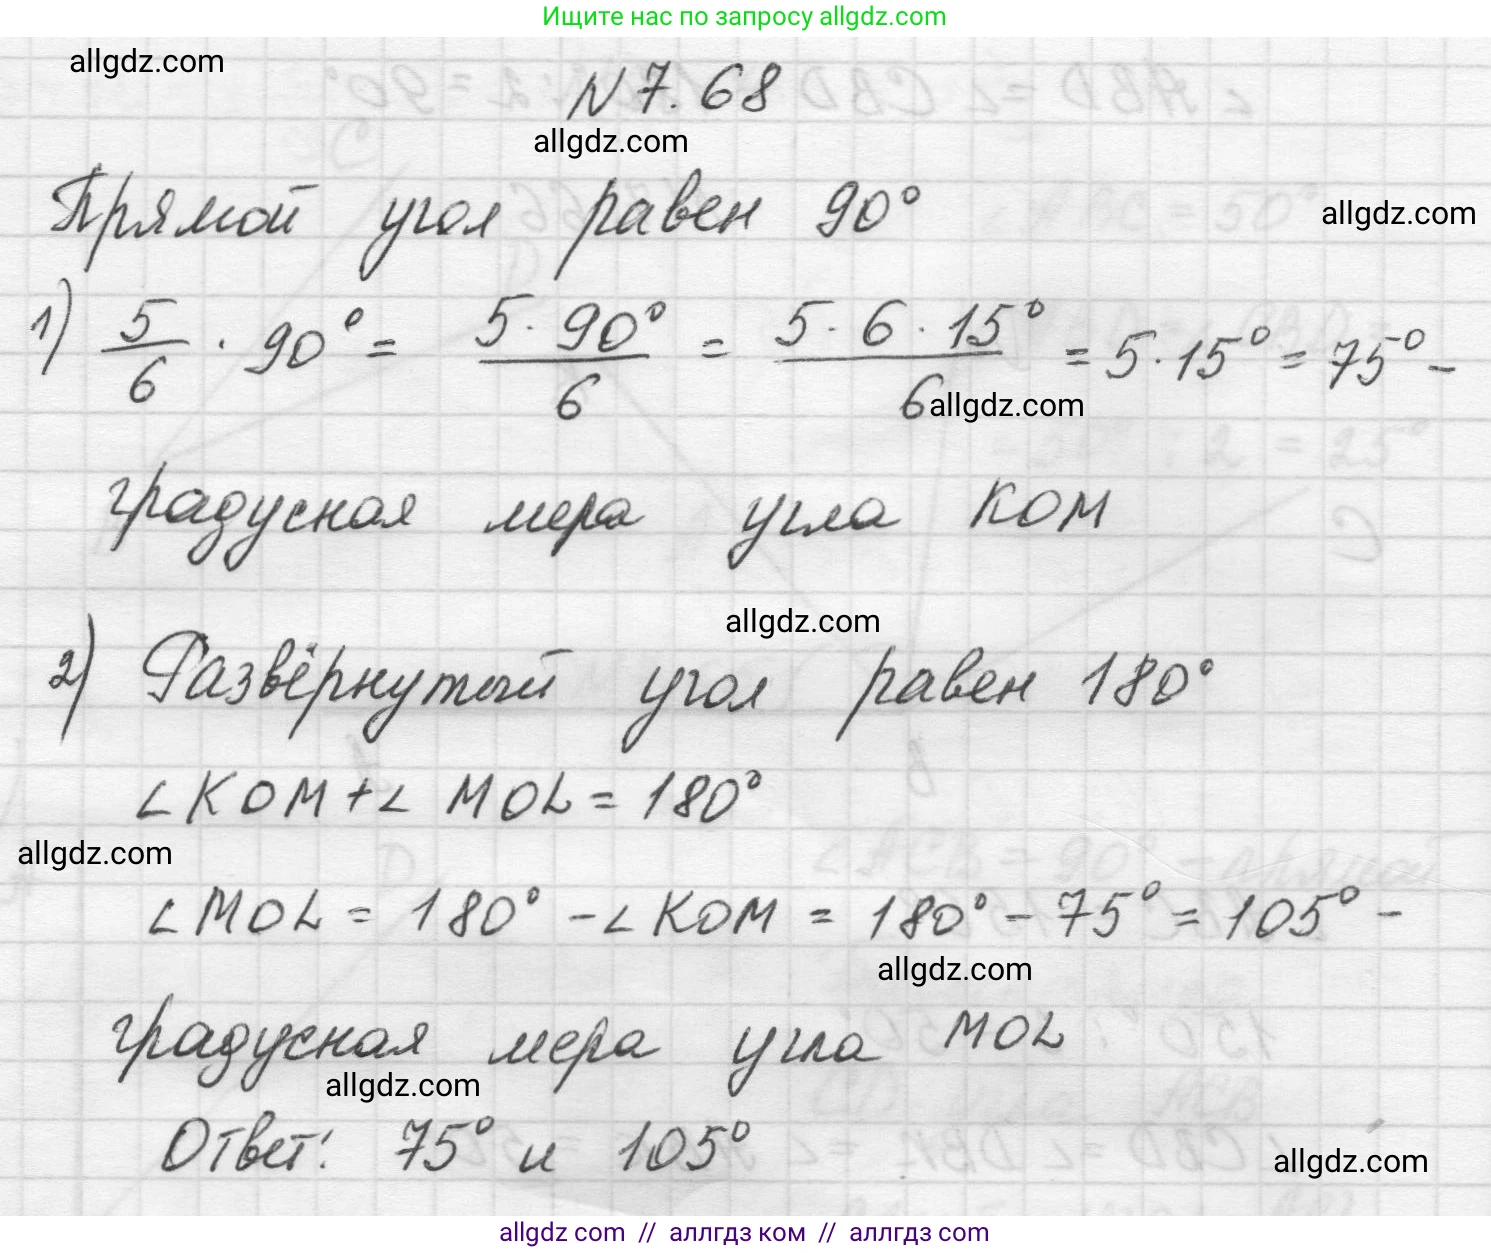 Ищите нас по запросу allgdz.com
allgdz.com
N 7. 68
allgdz.com
Прямой угол равен 90°
allgdz.com
1) 5/6 · 90° = 5 · 90°/6 = 5 · 6 · 15°/6 = 5 · 15° = 75° –
allgdz.com
градусная мера угла КОМ
allgdz.com
2) Развёрнутый угол равен 180°
∠KOM + ∠ MOL = 180°
allgdz.com
∠MOL = 180° – ∠KOM = 180° – 75° = 105° –
allgdz.com
градусная мера угла MOL
allgdz.com
Ответ: 75° и 105°
allgdz.com
allgdz.com // аллгдз ком // аллгдз com